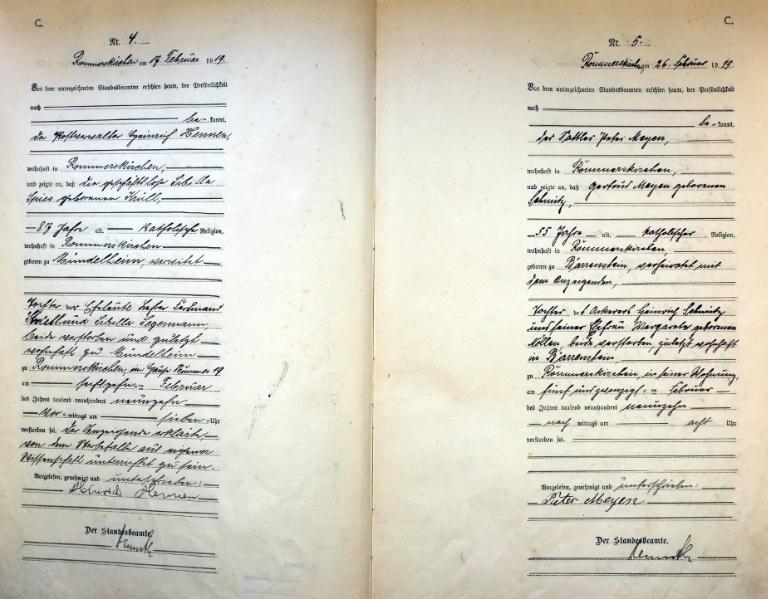 C.
Nr. 4.
Rommerskirchen am 17 Februar 1919.
Vor dem unterzeichneten Standesbeamten erschien heute, der Persönlichkeit
nach
be kannt,
der Postverwalter Heinrich Hennen,
wohnhaft in Rommerskirchen,
und zeigte an, daß die geschäftslose Sibilla
Spies geborenen
87 Jahre alt, katholische Religion,
wohnhaft in Rommerskirchen
geboren zu Mündelheim, verwitwet
Tochter der Eheleute Ferdinand
und Sibilla Segermann,
beide verstorben und zuletzt
wohnhaft zu Mündelheim
zu Rommerskirchen, in Hause Nummer 19
am sechzehn Februar
des Jahres tausend neunhundert neunzehn
Vor mittags um sieben Uhr
verstorben sei. Der Anzeigende erklärte
von dem Sterbefalle aus eigener
Wissenschaft unterrichtet zu sein.
Vorgelesen, genehmigt und unterschrieben:
Heinrich Hennen
Der Standesbeamte.
C.
Nr. 5.
Rommerskirchen am 26. Februar 1919.
Vor dem unterzeichneten Standesbeamten erschien heute, der Persönlichkeit
nach
be kannt,
der Sattler Peter Meyen,
wohnhaft in Rommerskirchen,
und zeigte an, daß Gertrud Meyen geborenen
Schmitz,
55 Jahre alt, katholischer Religion,
wohnhaft in Rommerskirchen
geboren zu Barrenstein, verheiratet mit
dem Anzeigenden,
Tochter des Ackerers Heinrich Schmitz
und seiner Ehefrau Margareta geborenen
Nöllen, beide verstorben, zuletzt wohnhaft
in Barrenstein
zu Rommerskirchen, in seiner Wohnung,
am fünf und zwanzig Februar
des Jahres tausend neunhundert neunzehn
nach mittags um acht Uhr
verstorben sei.
Vorgelesen, genehmigt und unterschrieben:
Peter Meyen
Der Standesbeamte.